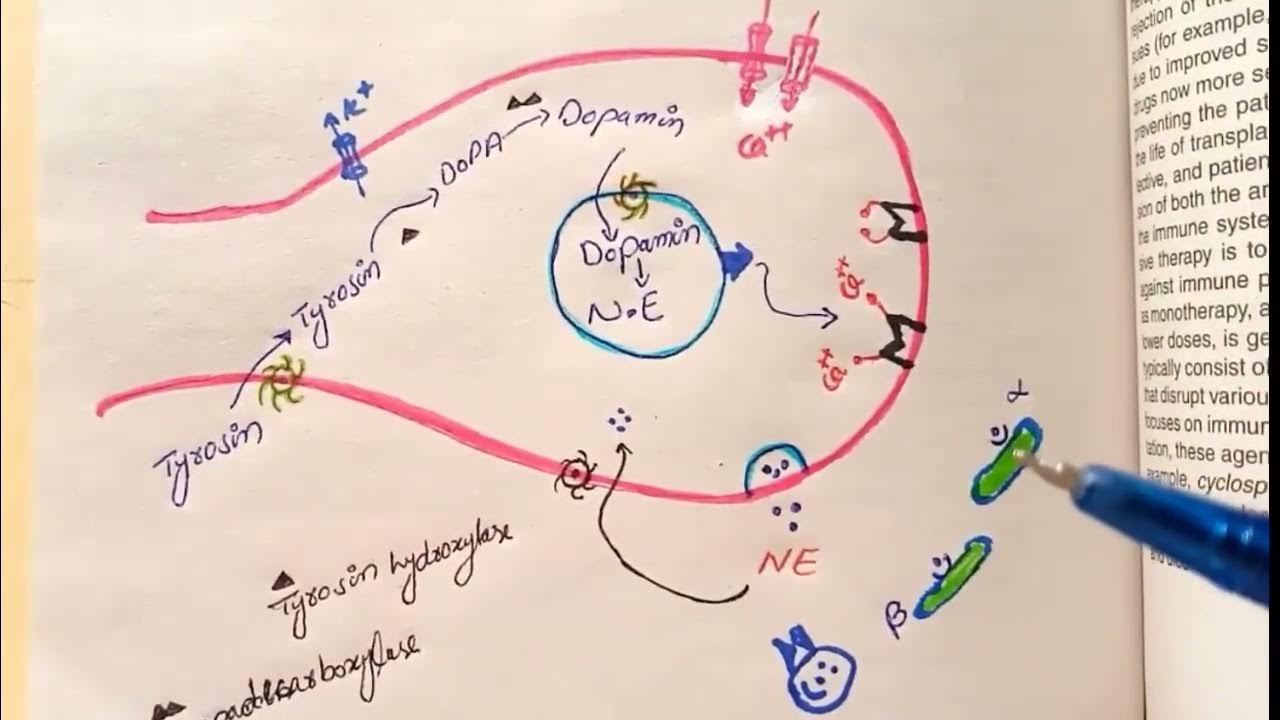 K+
Ca++
Dopamin
DOPA
Tyrosin
Dopamin
N.E
Ca++
Ca++
Tyrosin
NE
α
β
Tyrosin hydroxylase
rejection of
sues (for example,
due to improved s
drugs now more se
preventing the pat
the life of transpla
ective, and patien
son of both the ar
the immune syste
sive therapy is to
against immune p
as monotherapy, a
lower doses, is ge
typically consist of
that disrupt variou
focuses on immun
tation, these agen
example, cyclosp